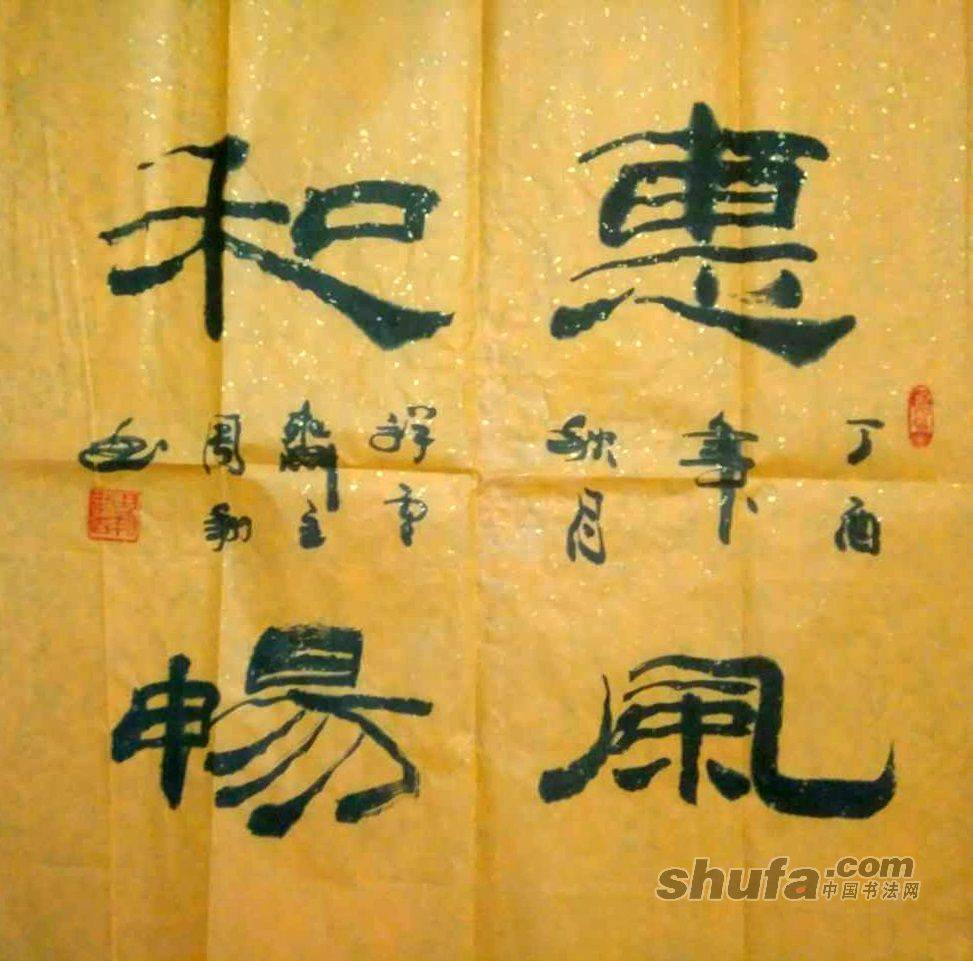 惠風
和暢
丁酉
年
秋月
祥雲
齋主
周翔
書
shufa.com
中国书法网